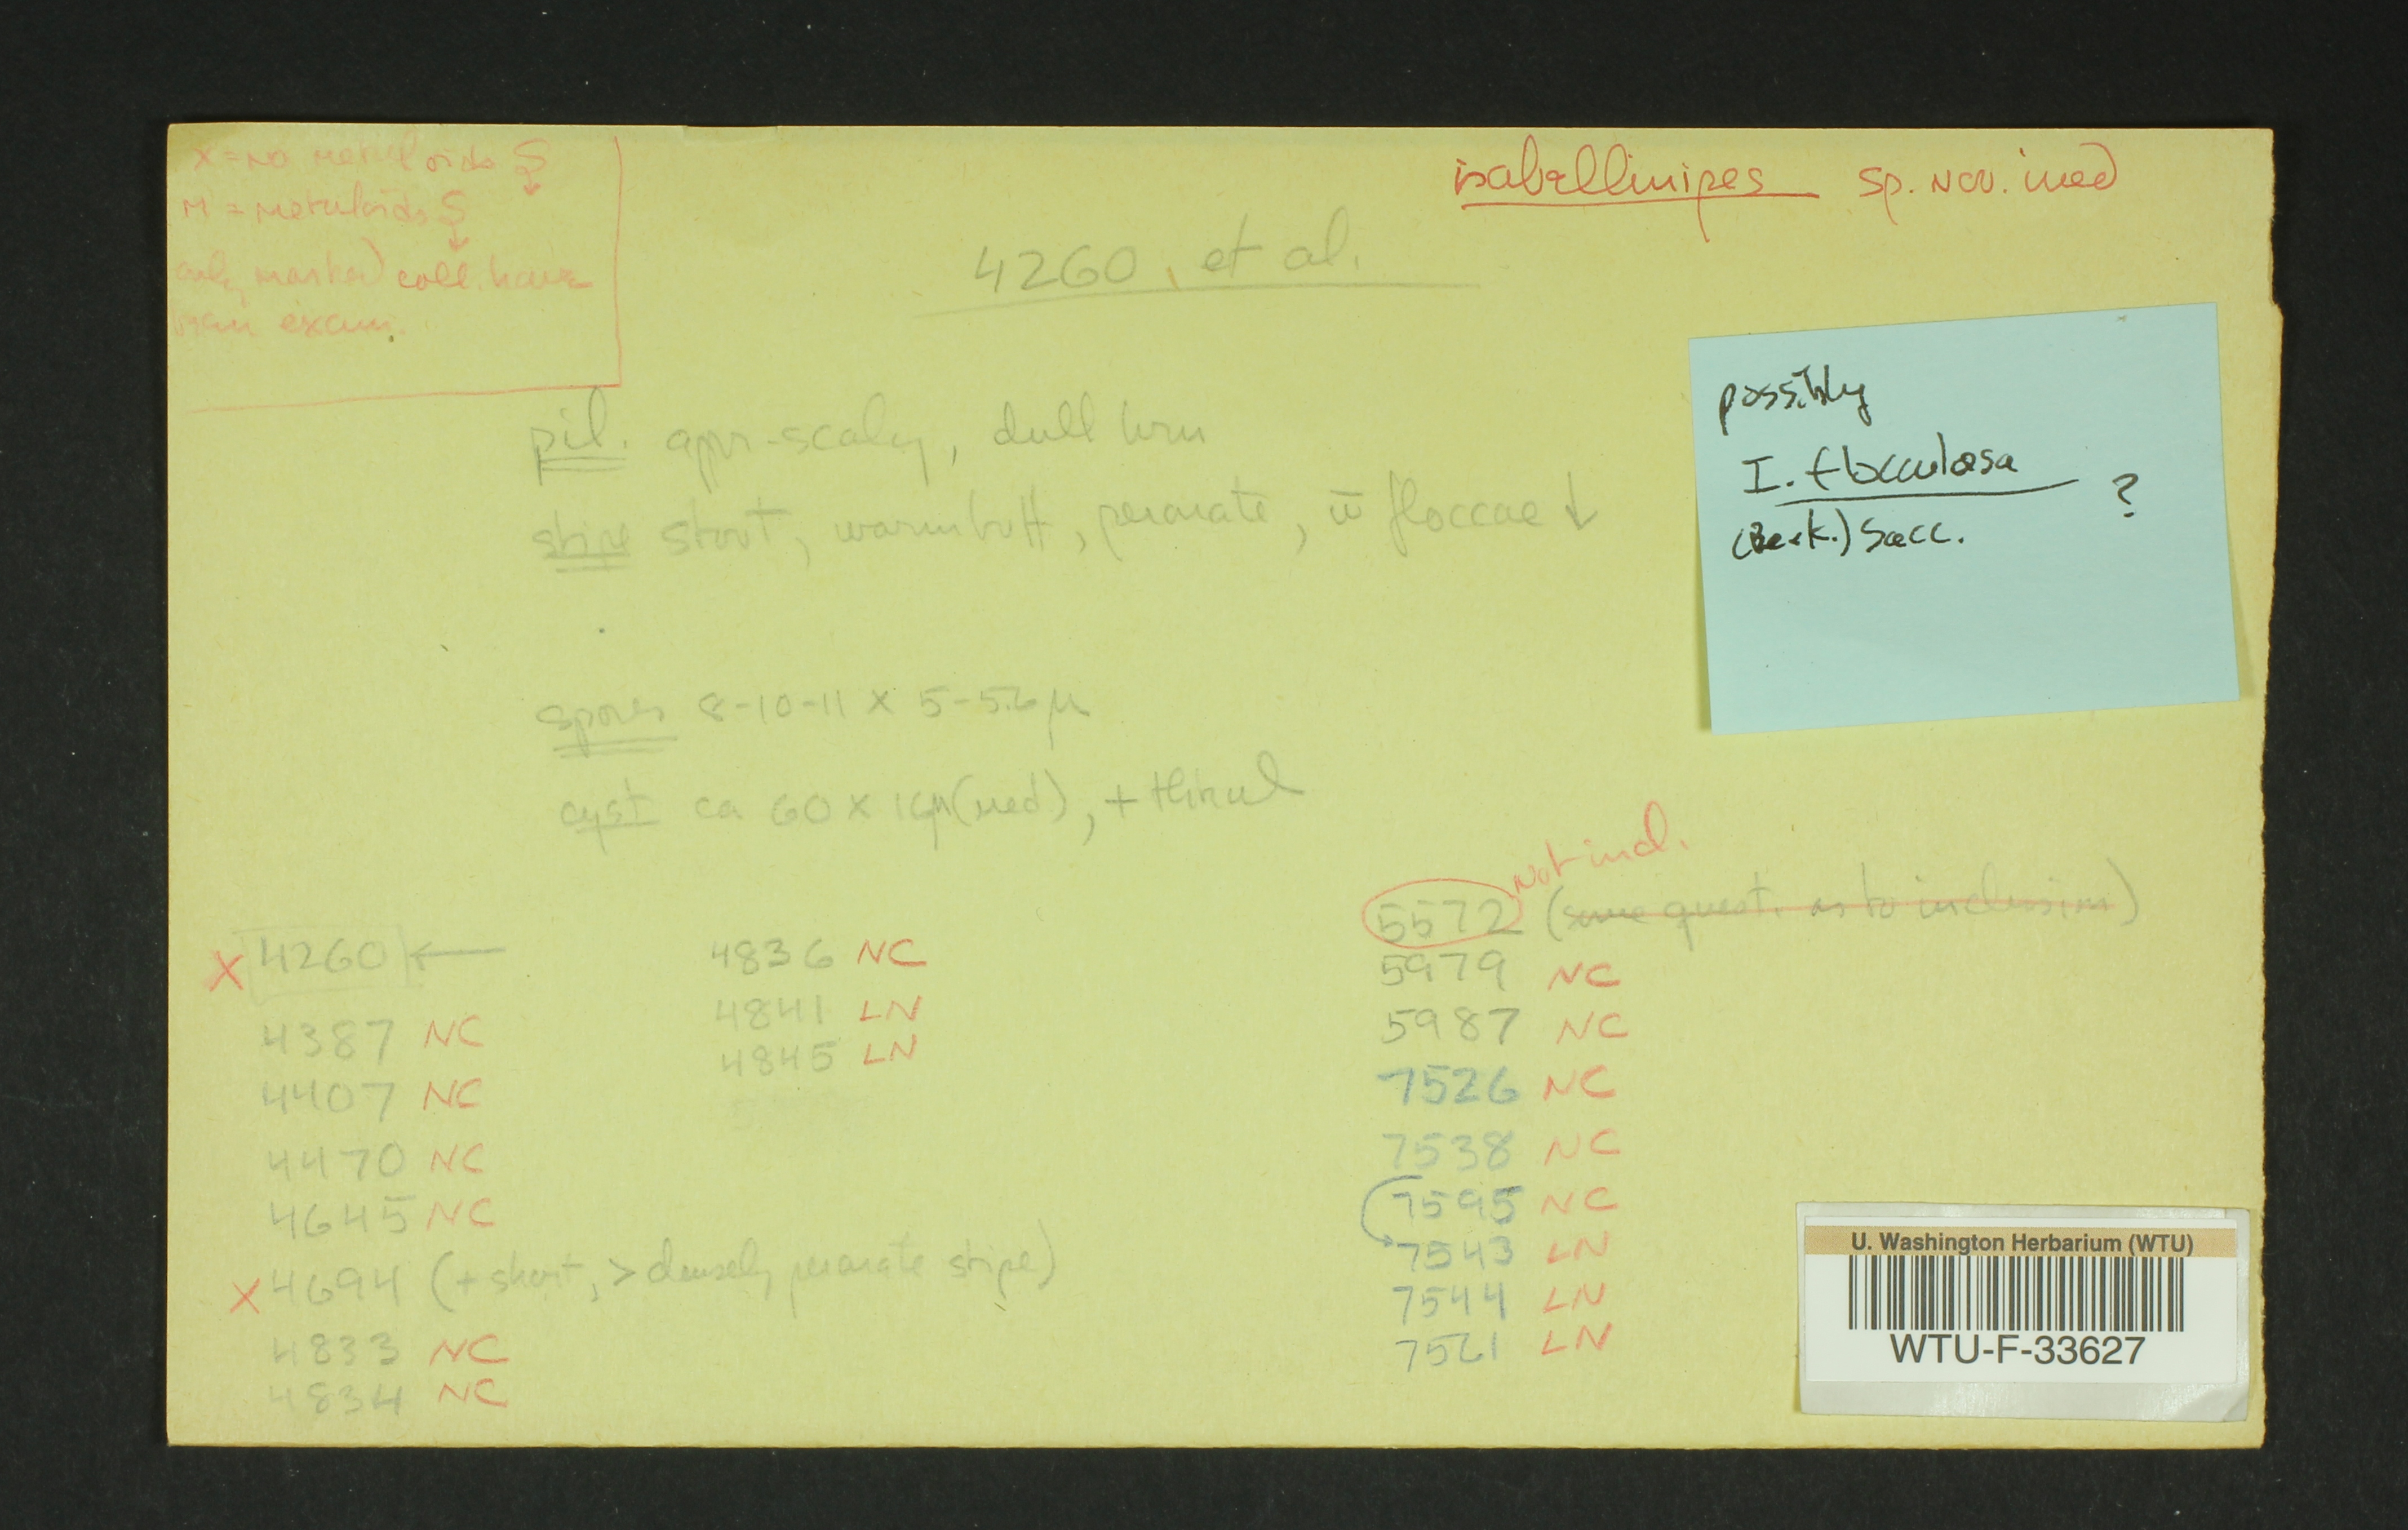 x = no metuloids S
M = metuloids S
only marked coll. have
been exam.
isabellinipes sp. nov. ined
4260, et al.
possibly
I. flocculosa ?
(Berk.) Sacc.
pil. appr-scaly, dull brn
stipe stout, warm buff, peronate, w̄ floccae ↓
spores 8-10-11 x 5-5.6 µ
cyst ca 60 x 16µ (med), + thkwal
X 4260 ←
4387 NC
4407 NC
4470 NC
4645 NC
X 4694 (+ short, > densely peronate stipe)
4833 NC
4834 NC
4836 NC
4841 LN
4845 LN
Not incl.
5572 (some quest. as to inclusion)
5979 NC
5987 NC
7526 NC
7538 NC
7595 NC
7543 LN
7544 LN
7521 LN
U. Washington Herbarium (WTU)
WTU-F-33627